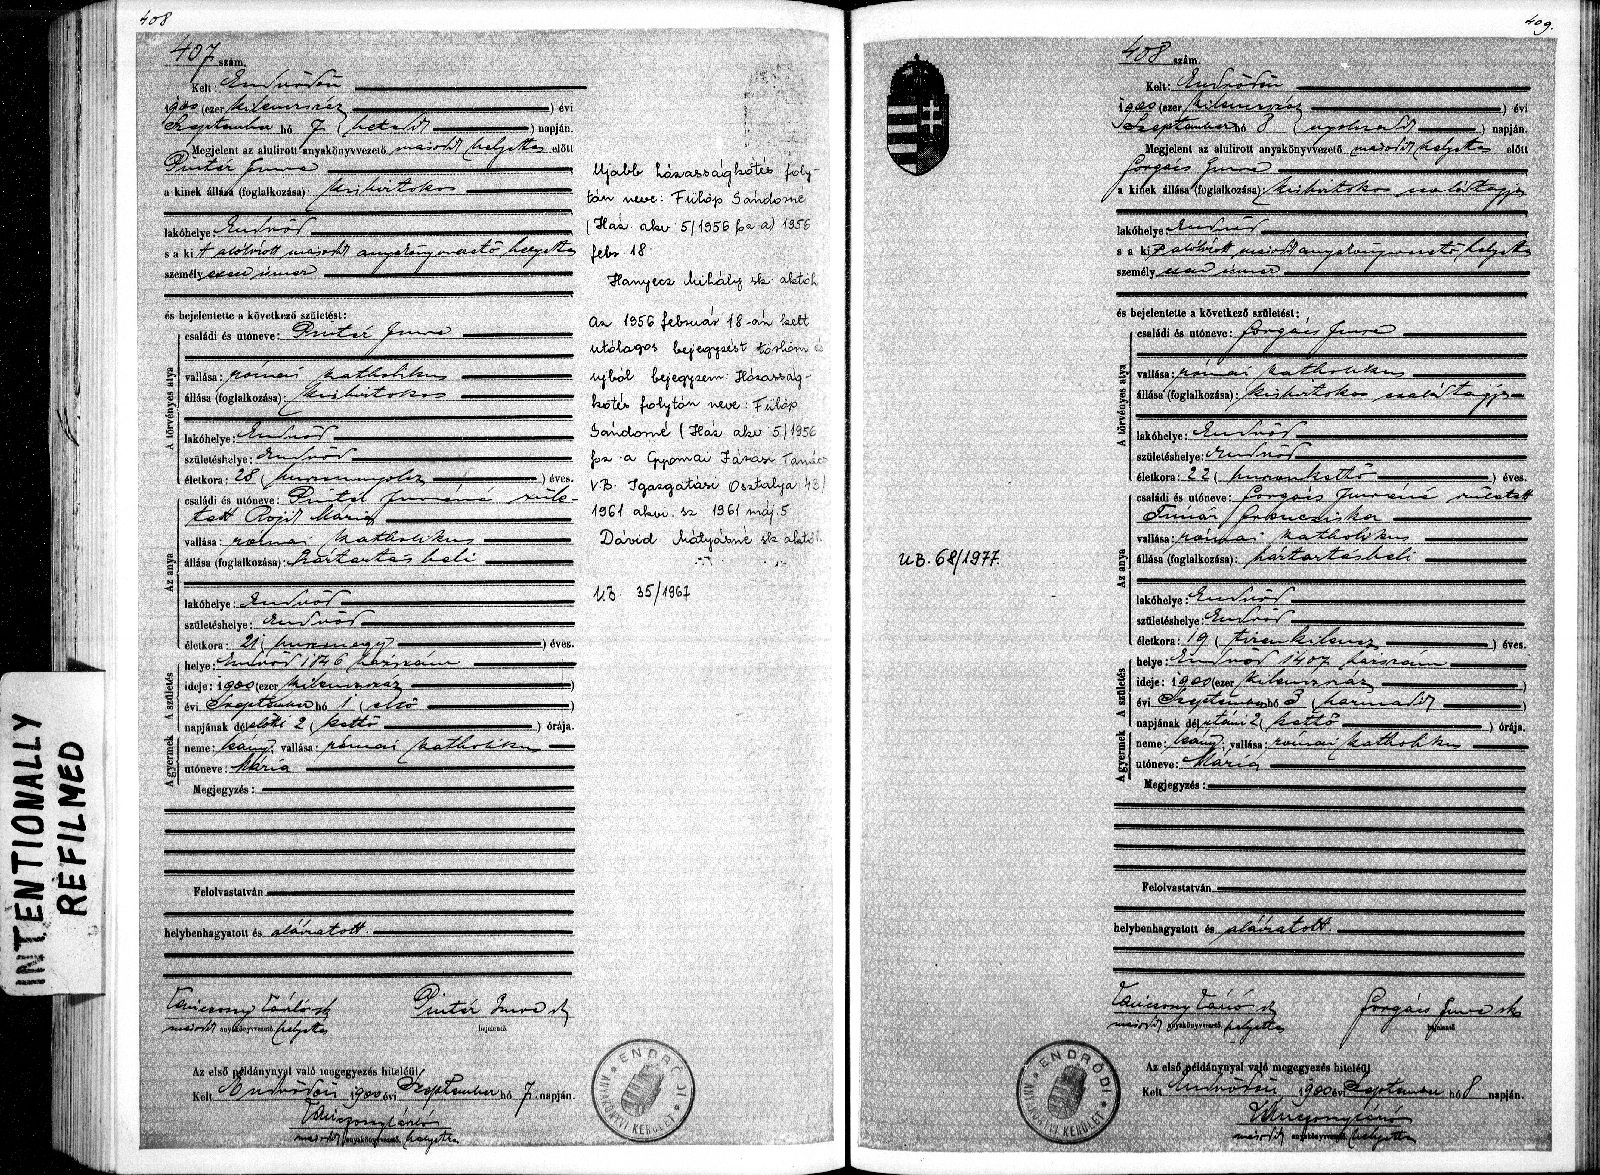 408
407 szám.
Kelt: Endrődön
1900 (ezer kilenczszáz ) évi
Szeptember hó 7 ( hetedik ) napján.
Megjelent az alulirott anyakönyvvezető második helyettes előtt
Pintér Imre
a kinek állása (foglalkozása): kisbirtokos
lakóhelye: Endrőd
s a kit alólirott második anyakönyvvezető helyettes
személyesen ismer
és bejelentette a következő születést:
A törvényes atya
családi és utóneve: Pintér Imre
vallása: római katholikus
állása (foglalkozása): kisbirtokos
lakóhelye: Endrőd
születéshelye: Endrőd
életkora: 28 ( huszonnyolcz ) éves.
Az anya
családi és utóneve: Pintér Imréné szüle-
tett Rojik Mária
vallása: római katholikus
állása (foglalkozása): háztartásbeli
lakóhelye: Endrőd
születéshelye: Endrőd
életkora: 21 ( huszonegy ) éves.
A születés
helye: Endrőd 1846 házszám
ideje: 1900 (ezer kilenczszáz )
évi Szeptember hó 1 ( első )
napjának délelőtti 2 ( kettő ) órája.
A gyermek
neme: leány; vallása: római katholikus
utóneve: Mária
Megjegyzés:
Felolvastatván
helybenhagyatott és aláiratott.
Vaniczony László sk Pintér Imre sk
második anyakönyvvezető helyettes bejelentő.
Az első példánynyal való megegyezés hiteléül
Kelt Endrődön 1900 évi Szeptember hó 7. napján.
második anyakönyvvezető helyettes
ENDRŐDI
ANYAKÖNYVI KERÜLET
Ujabb házasságkötés foly-
tán neve: Fülöp Sándorné
(Ház akv 5/1956 fsz a) 1956
febr 18
Hanyecz Mihály sk aktóh
Az 1956 február 18-án kelt
utólagos bejegyzést törlöm és
ujból bejegyzem. Házasság-
kötés folytán neve: Fülöp
Sándorné (Ház akv 5/1956
fsz a Gyomai Járási Tanács
VB. Igazgatási Osztálya 43/
1961 akv. sz 1961 máj. 5
Dávid Mátyásné sk aktóh
UB. 35/1967
INTENTIONALLY
REFILMED
409.
408 szám.
Kelt: Endrődön
1900 (ezer kilenczszáz ) évi
Szeptember hó 8 ( nyolczadik ) napján.
Megjelent az alulirott anyakönyvvezető második helyettes előtt
Forgács Imre
a kinek állása (foglalkozása): kisbirtokos családtagja
lakóhelye: Endrőd
s a kit alólirott második anyakönyvvezető helyettes
személyesen ismer
és bejelentette a következő születést:
A törvényes atya
családi és utóneve: Forgács Imre
vallása: római katholikus
állása (foglalkozása): kisbirtokos családtagja
lakóhelye: Endrőd
születéshelye: Endrőd
életkora: 22 ( huszonkettő ) éves.
Az anya
családi és utóneve: Forgács Imréné született
Timár Francziska
vallása: római katholikus
állása (foglalkozása): háztartásbeli
lakóhelye: Endrőd
születéshelye: Endrőd
életkora: 19 ( tizenkilencz ) éves.
A születés
helye: Endrőd 1407 házszám
ideje: 1900 (ezer kilenczszáz )
évi Szeptember hó 3 ( harmadik )
napjának délutáni 2 ( kettő ) órája.
A gyermek
neme: leány; vallása: római katholikus
utóneve: Mária
Megjegyzés:
Felolvastatván
helybenhagyatott és aláiratott.
Forgács Imre sk
második anyakönyvvezető helyettes bejelentő
Az első példánynyal való megegyezés hiteléül
Kelt Endrődön 1900 évi Szeptember hó 8 napján.
második anyakönyvvezető helyettes
ENDRŐDI
ANYAKÖNYVI KERÜLET
UB. 68/1977.